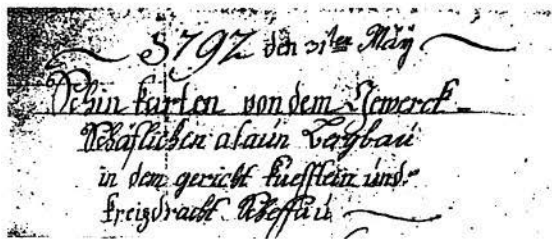 1792 den 31ten Maÿ
Schin Karten von dem Gewerck-
Schäflichen alaun Bergbau
in dem gericht Kueffstein und
Kreizdracht Scheffau